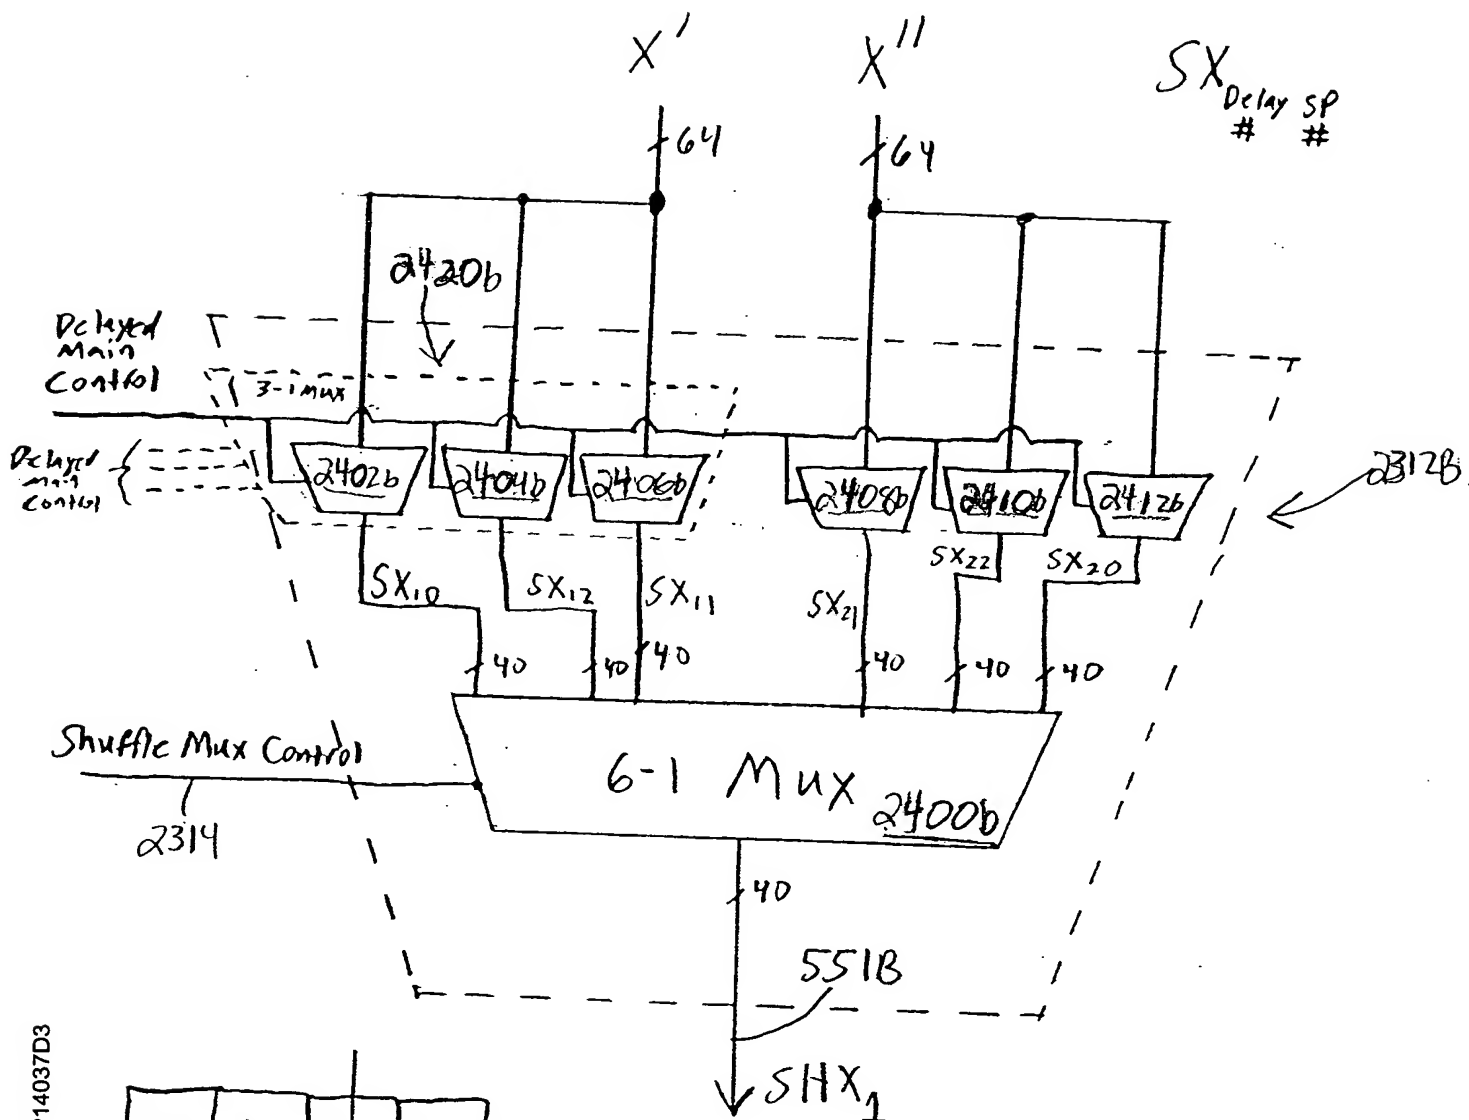 X' X'' SX Delay # SP #
64 64
2420b
Delayed
Main
Control
3-1 Mux
Delayed
Main
Control
2402b 2404b 2406b 2408b 2410b 2412b
2312B
SX10 SX12 SX11 SX21 SX22 SX20
40 40 40 40 40 40
Shuffle Mux Control
2314
6-1 Mux
2400b
40
551B
SHX1
14037D3